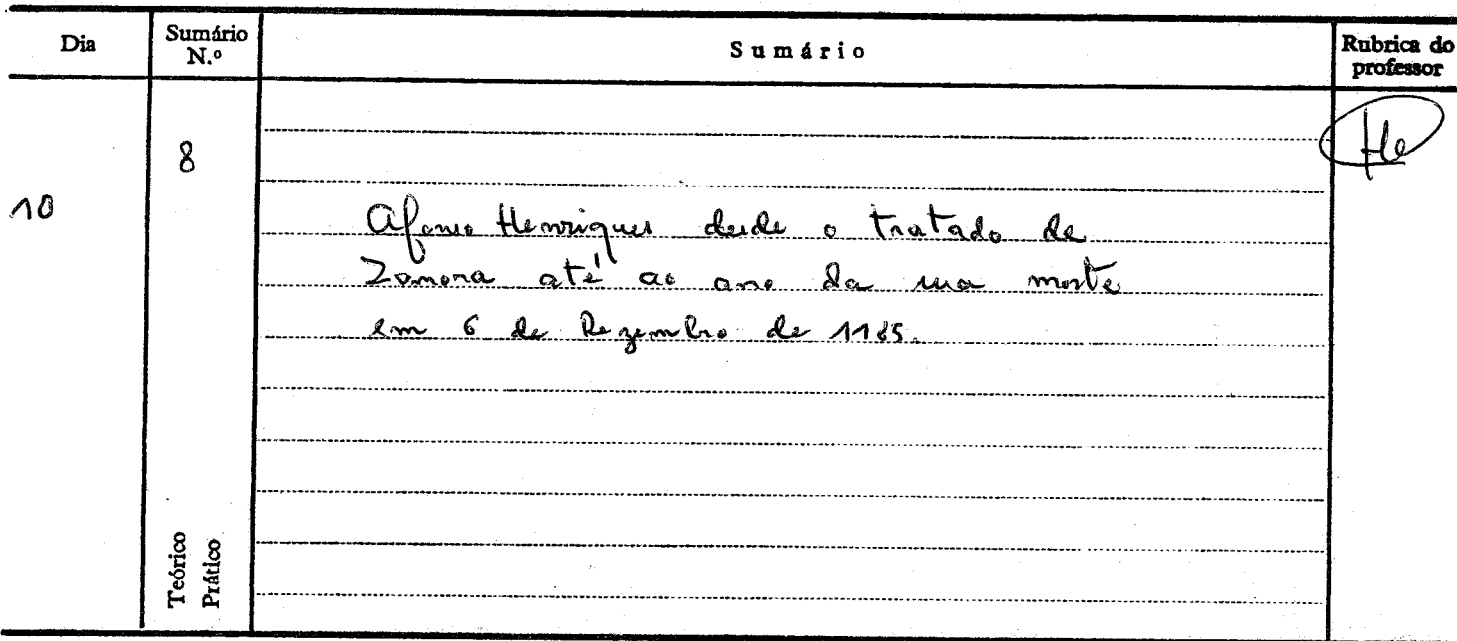 Dia
Sumário N.º
Sumário
Rubrica do professor
10
8
Afonso Henriques desde o tratado de
Zamora até ao ano da sua morte
em 6 de Dezembro de 1185.
Teórico
Prático